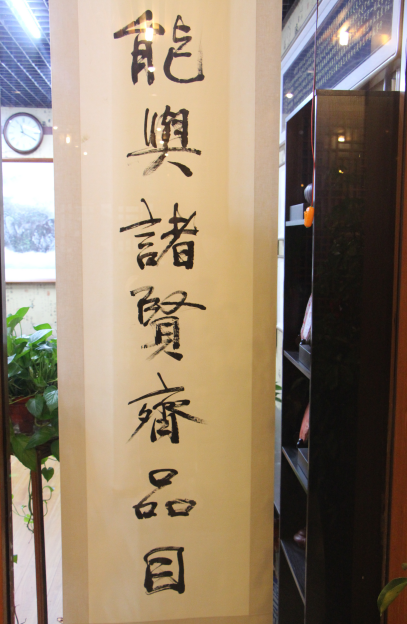 能與諸賢齊品目